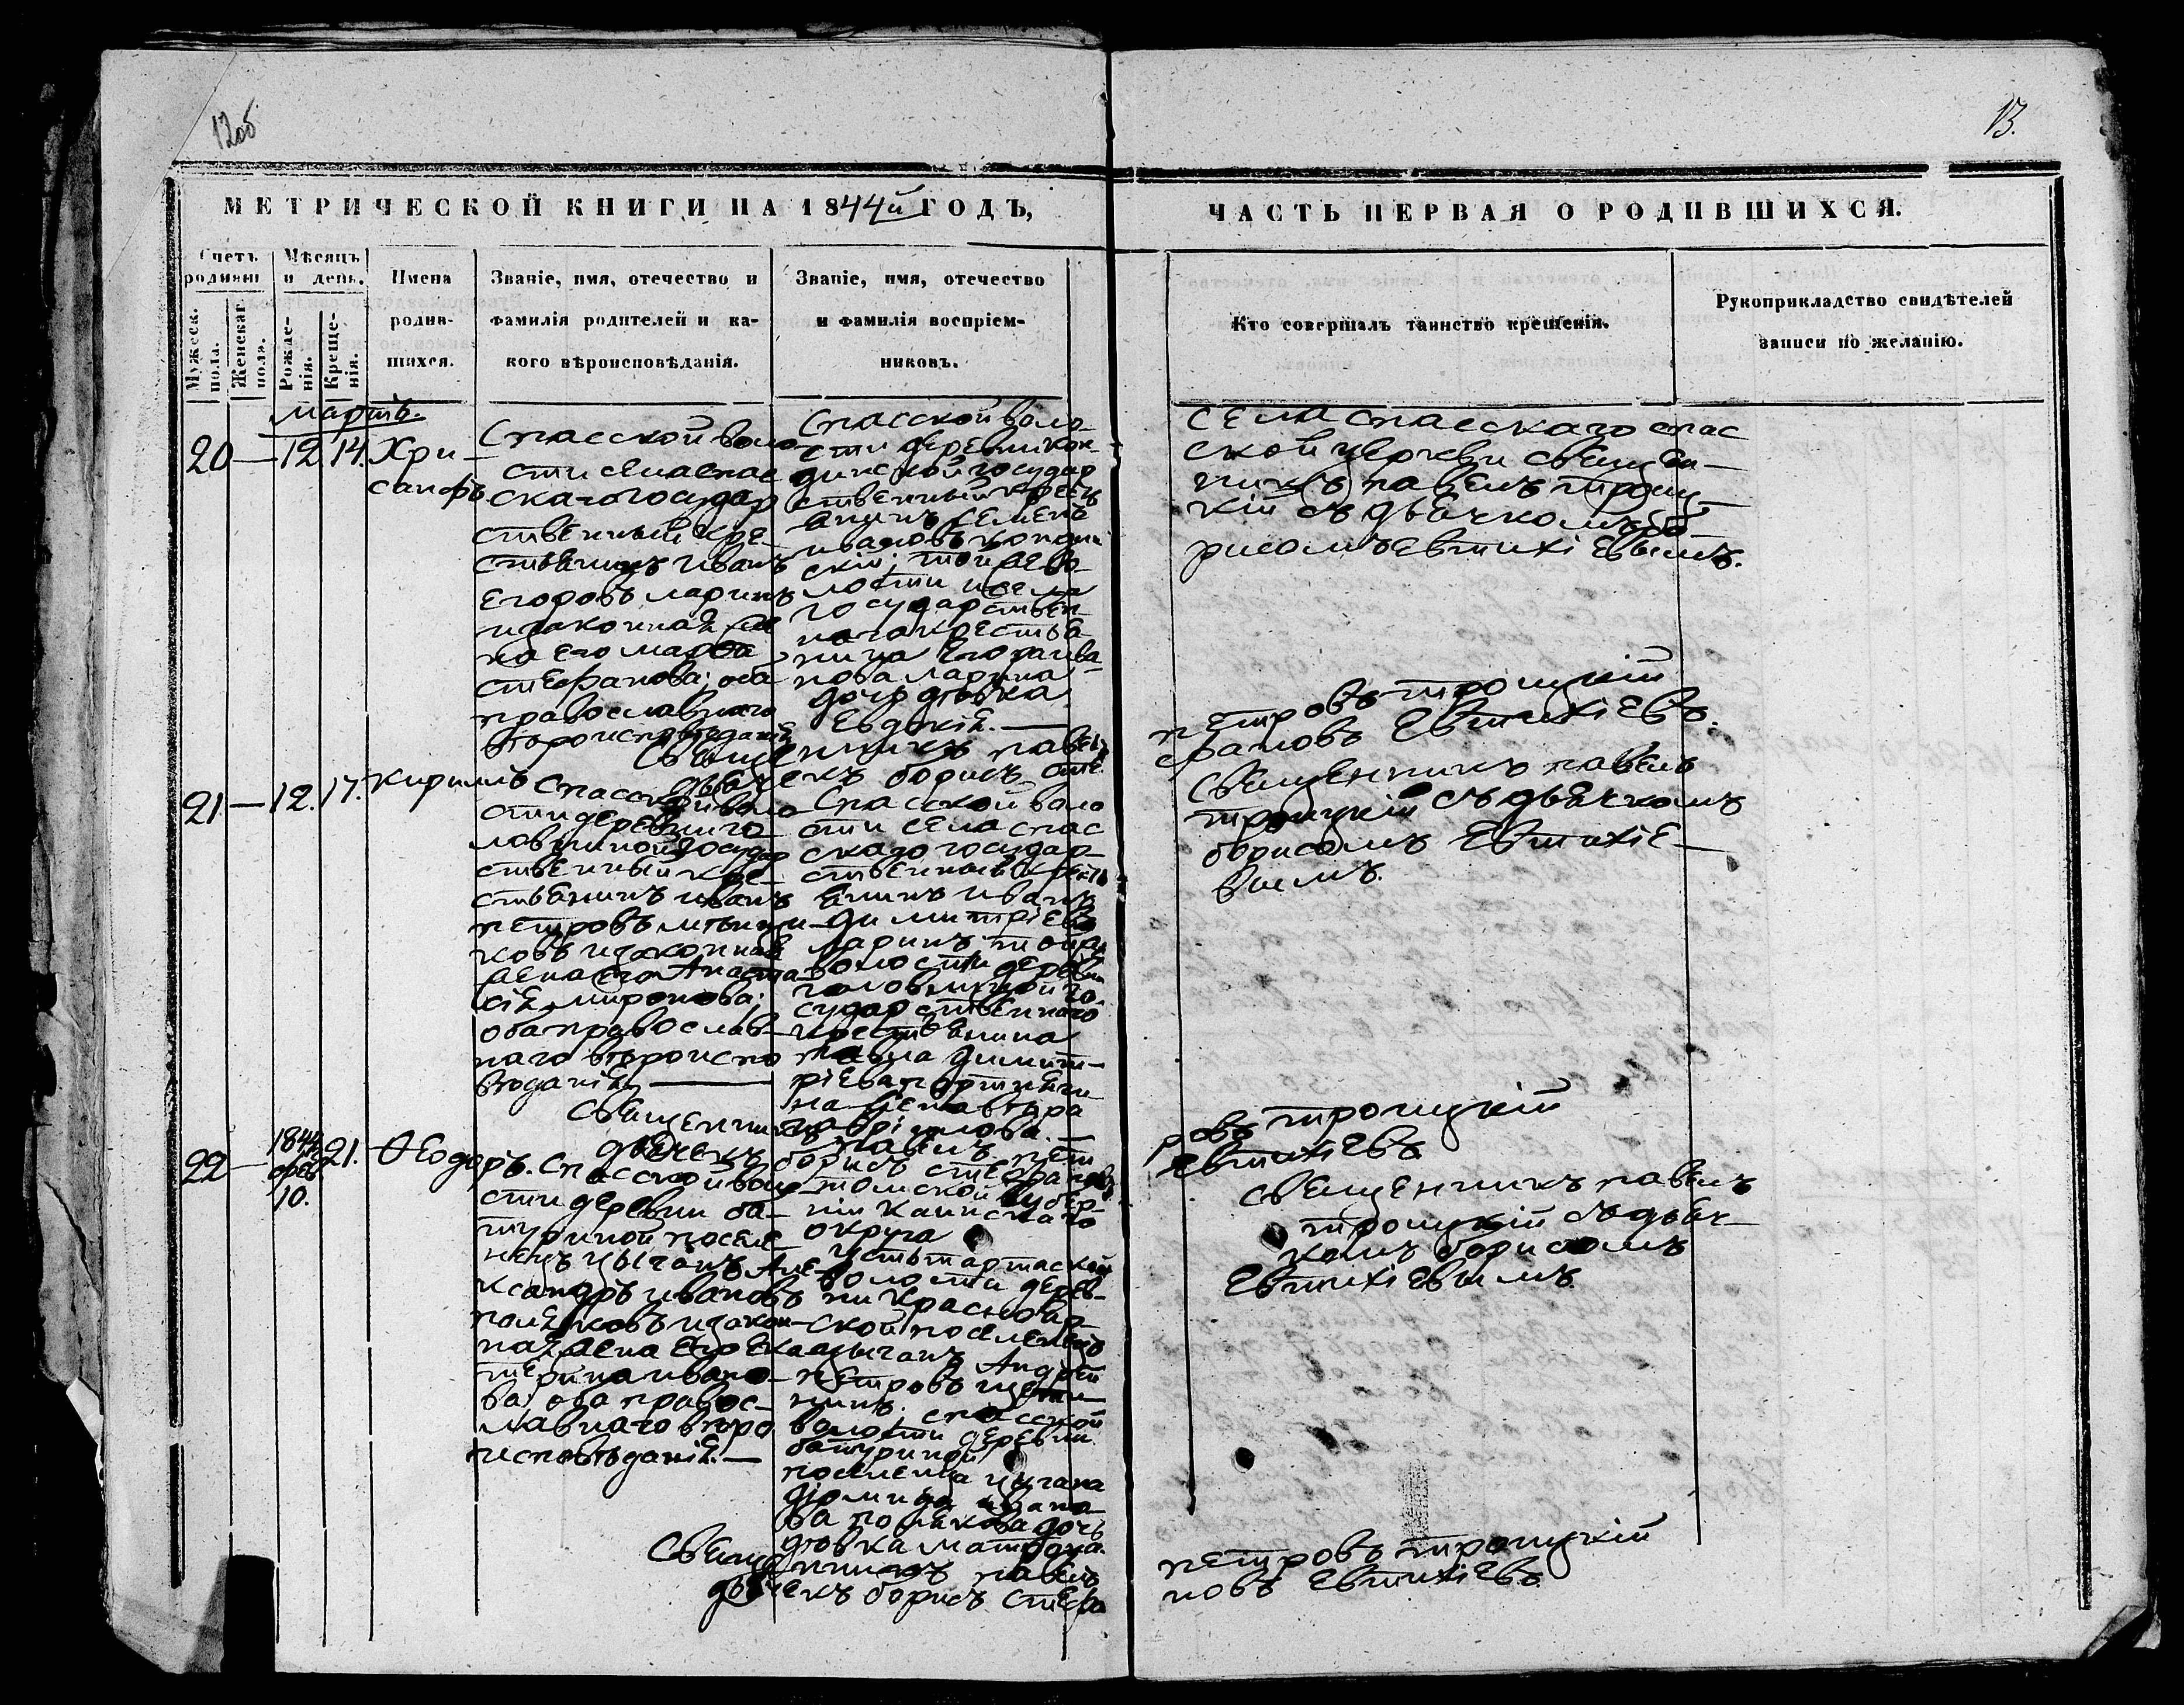 12об
13.
МЕТРИЧЕСКОЙ КНИГИ НА 1844й ГОДЪ,
ЧАСТЬ ПЕРВАЯ О РОДИВШИХСЯ.
Счетъ родивш
Мужеск. пола.
Женскаг пола.
Мѣсяцъ и день.
Рожде-нія.
Креще-нія.
Имена
родив-
шихся.
Званіе, имя, отечество и
фамилія родителей и ка-
кого вѣроисповѣданія.
Званіе, имя, отечество
и фамилія воспріем-
никовъ.
Кто совершалъ таинство крещенія.
Рукоприкладство свидѣтелей
записи по желанію.
мартъ.
20 — 12. 14. Хри-
санфъ
Спасской воло
сти села Спас
скаго государ
ственный кре-
стьянинъ Иванъ
Егоровъ Ларинъ
и законная же
на его Марѳа
Стефанова; оба
православнаго
вѣроисповѣданія
Спасской воло-
сти деревни Кон
динской государ
ственный кресть
янинъ Семенъ
Ивановъ Кондин
скій; той же во-
лости и села
государствен
наго крестья-
нина Егора Ива-
нова Ларина
дочь дѣвка
Евдокія. —
села Спасскаго Спас
ской церкви священ-
никъ Павелъ Троиц-
кій съ дьячкомъ Бо
рисомъ Евтихіевымъ.
Священникъ Павелъ
Петровъ Троицкій
дьячекъ Борисъ Сте
фановъ Евтихіевъ.
21. — 12. 17. Кириллъ
Спасской воло-
сти деревни Го-
ловниной государ
ственный кре-
стьянинъ Иванъ
Петровъ Мѣльни-
ковъ и законная
жена его Анаста-
сія Миронова;
оба православ-
наго вѣроиспо
вѣданія —
Спасской воло
сти села Спас
скаго государ-
ственный кресть
янинъ Иванъ
Димитріевъ
Ларинъ той же
волости деревни
Головниной го-
сударственнаго
крестьянина
Павла Димит-
ріева
на жена
Гавріилова. —
Священникъ Павелъ
Троицкій съ дьячкомъ
Борисомъ Евтихіе-
вымъ.
Священникъ Павелъ Пет
ровъ Троицкій
дьячекъ Борисъ Стефановъ
Евтихіевъ
22 — 1844 фев 10. 21. Ѳеодоръ.
Спасской воло-
сти деревни Ба-
туриной поселе-
нецъ цыганъ Але-
ксандръ Ивановъ
Поляковъ и закон-
ная жена его Ека-
терина Ивано-
ва; оба правос-
лавнаго вѣро
исповѣданія. —
Томской губер-
ніи Каинскаго
округа
Усть Тартаской
волости дерев-
ни Краснояр-
ской поселенецъ
цыганъ Андрей
Петровъ
Спасской
волости деревни
Батуриной
поселенца цыгана
Діомида Ивано-
ва Полякова дочь
дѣвка Матрона.
Священникъ Павелъ
Троицкій съ дьяч-
комъ Борисомъ
Евтихіевымъ
Священникъ Павелъ
Петровъ Троицкій
дьячекъ Борисъ Стефа
новъ Евтихіевъ